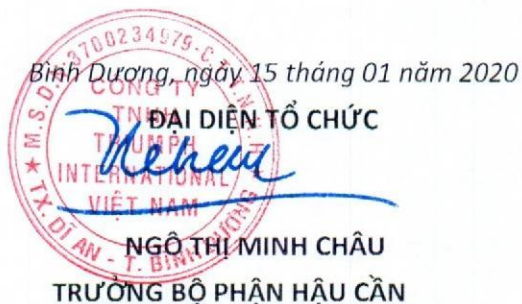 Bình Dương, ngày 15 tháng 01 năm 2020
ĐẠI DIỆN TỔ CHỨC
M.S.D.N: 3700234979-C.T.T.N.H.H
CÔNG TY
TNHH
TRIUMPH
INTERNATIONAL
VIỆT NAM
TX. DĨ AN - T. BÌNH DƯƠNG
NGÔ THỊ MINH CHÂU
TRƯỞNG BỘ PHẬN HẬU CẦN